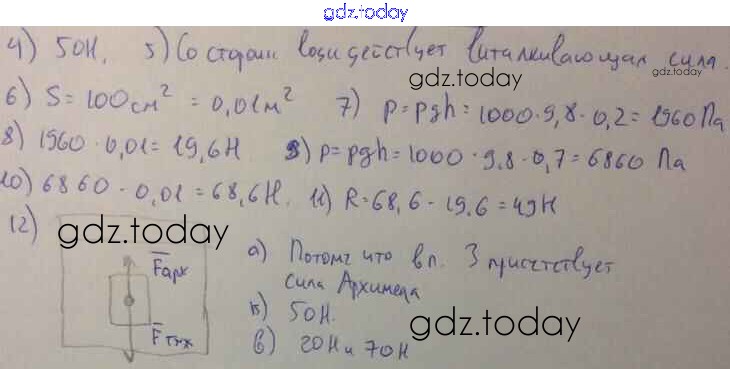 gdz.today
4) 50Н. 5) Со сторон воды действует выталкивающая сила.
gdz.today
gdz.today
6) S = 100см² = 0,01м² 7) p=ρgh=1000·9,8·0,2=1960Па
8) 1960·0,01=19,6Н 9) p=ρgh=1000·9.8·0,7=6860 Па
10) 6860·0,01=68,6Н. 11) R=68,6-19,6=49Н
12)
gdz.today
Fарх
Fтяж
а) Потому что в п. 3 присутствует
сила Архимеда
б) 50Н.
gdz.today
в) 20Н и 70Н